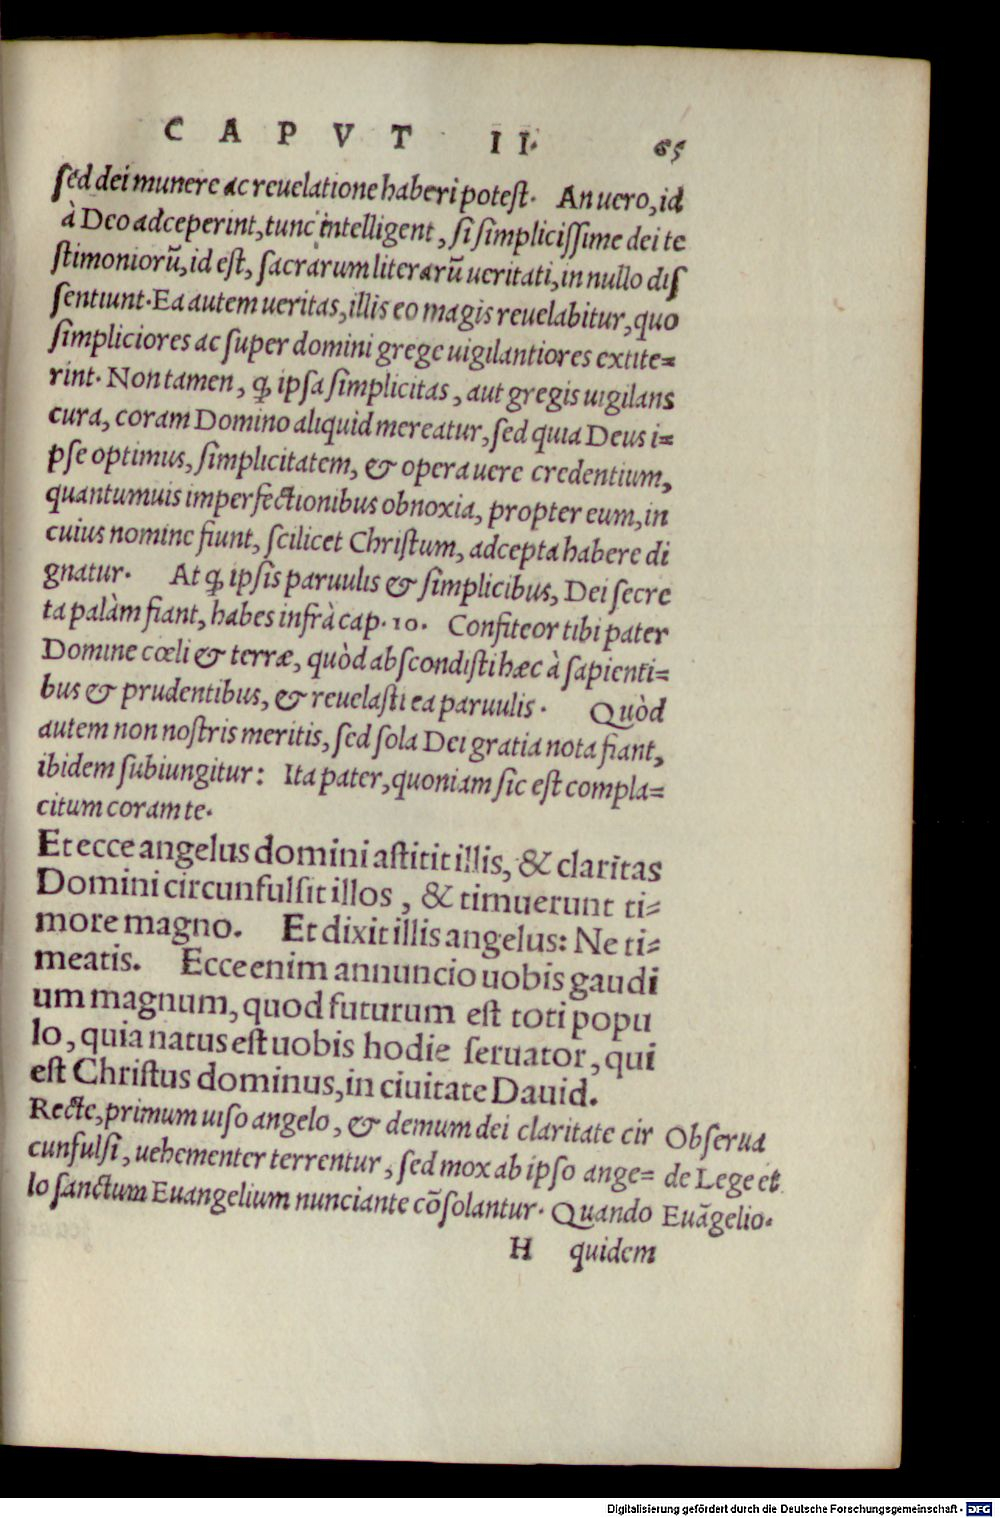 CAPVT II. 65
sed dei munere ac reuelatione haberi potest. An uero, id
à Deo adceperint, tunc intelligent, si simplicissime dei te
stimoniorũ, id est, sacrarum literarũ ueritati, in nullo dis
sentiunt. Ea autem ueritas, illis eo magis reuelabitur, quo
simpliciores ac super domini grege uigilantiores extite=
rint. Non tamen, ꝙ ipsa simplicitas, aut gregis uigilans
cura, coram Domino aliquid mereatur, sed quia Deus i=
pse optimus, simplicitatem, & opera uere credentium,
quantumuis imperfectionibus obnoxia, propter eum, in
cuius nomine fiunt, scilicet Christum, adcepta habere di
gnatur. At ꝙ ipsis paruulis & simplicibus, Dei secre
ta palàm fiant, habes infrà cap. 10. Confiteor tibi pater
Domine cœli & terræ, quòd abscondisti hæc à sapienti=
bus & prudentibus, & reuelasti ea paruulis. Quòd
autem non nostris meritis, sed sola Dei gratia nota fiant,
ibidem subiungitur: Ita pater, quoniam sic est compla=
citum coram te.
Et ecce angelus domini astitit illis, & claritas
Domini circunfulsit illos, & timuerunt ti=
more magno. Et dixit illis angelus: Ne ti=
meatis. Ecce enim annuncio uobis gaudi
um magnum, quod futurum est toti popu
lo, quia natus est uobis hodie seruator, qui
est Christus dominus, in ciuitate Dauid.
Recte, primum uiso angelo, & demum dei claritate cir
cunfulsi, uehementer terrentur, sed mox ab ipso ange=
lo sanctum Euangelium nunciante cõsolantur. Quando
Obserua
de Lege et
Euãgelio.
H quidem
Digitalisierung gefördert durch die Deutsche Forschungsgemeinschaft - DFG